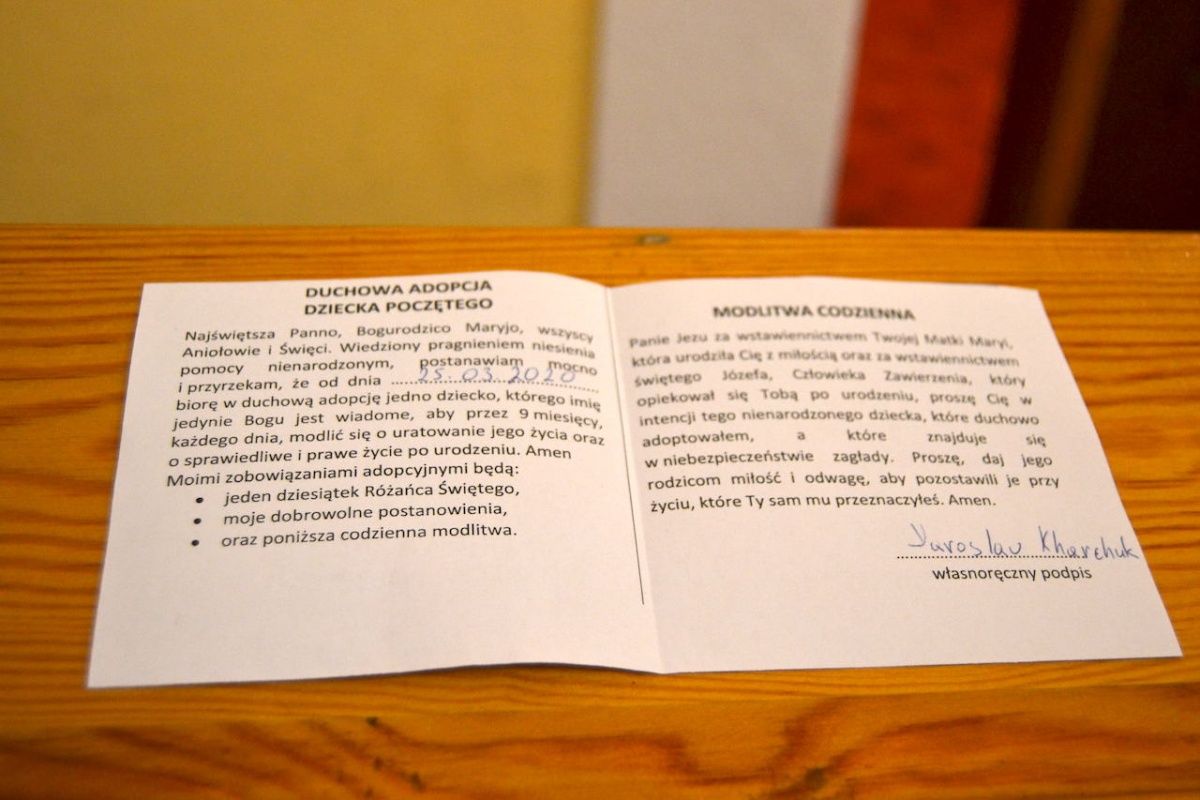 DUCHOWA ADOPCJA
DZIECKA POCZĘTEGO
Najświętsza Panno, Bogurodzico Maryjo, wszyscy
Aniołowie i Święci. Wiedziony pragnieniem niesienia
pomocy nienarodzonym, postanawiam mocno
i przyrzekam, że od dnia ....25.03.2020....
biorę w duchową adopcję jedno dziecko, którego imię
jedynie Bogu jest wiadome, aby przez 9 miesięcy,
każdego dnia, modlić się o uratowanie jego życia oraz
o sprawiedliwe i prawe życie po urodzeniu. Amen
Moimi zobowiązaniami adopcyjnymi będą:
• jeden dziesiątek Różańca Świętego,
• moje dobrowolne postanowienia,
• oraz poniższa codzienna modlitwa.
MODLITWA CODZIENNA
Panie Jezu za wstawiennictwem Twojej Matki Maryi,
która urodziła Cię z miłością oraz za wstawiennictwem
świętego Józefa, Człowieka Zawierzenia, który
opiekował się Tobą po urodzeniu, proszę Cię w
intencji tego nienarodzonego dziecka, które duchowo
adoptowałem, a które znajduje się
w niebezpieczeństwie zagłady. Proszę, daj jego
rodzicom miłość i odwagę, aby pozostawili je przy
życiu, które Ty sam mu przeznaczyłeś. Amen.
Yaroslav Kharchuk
własnoręczny podpis